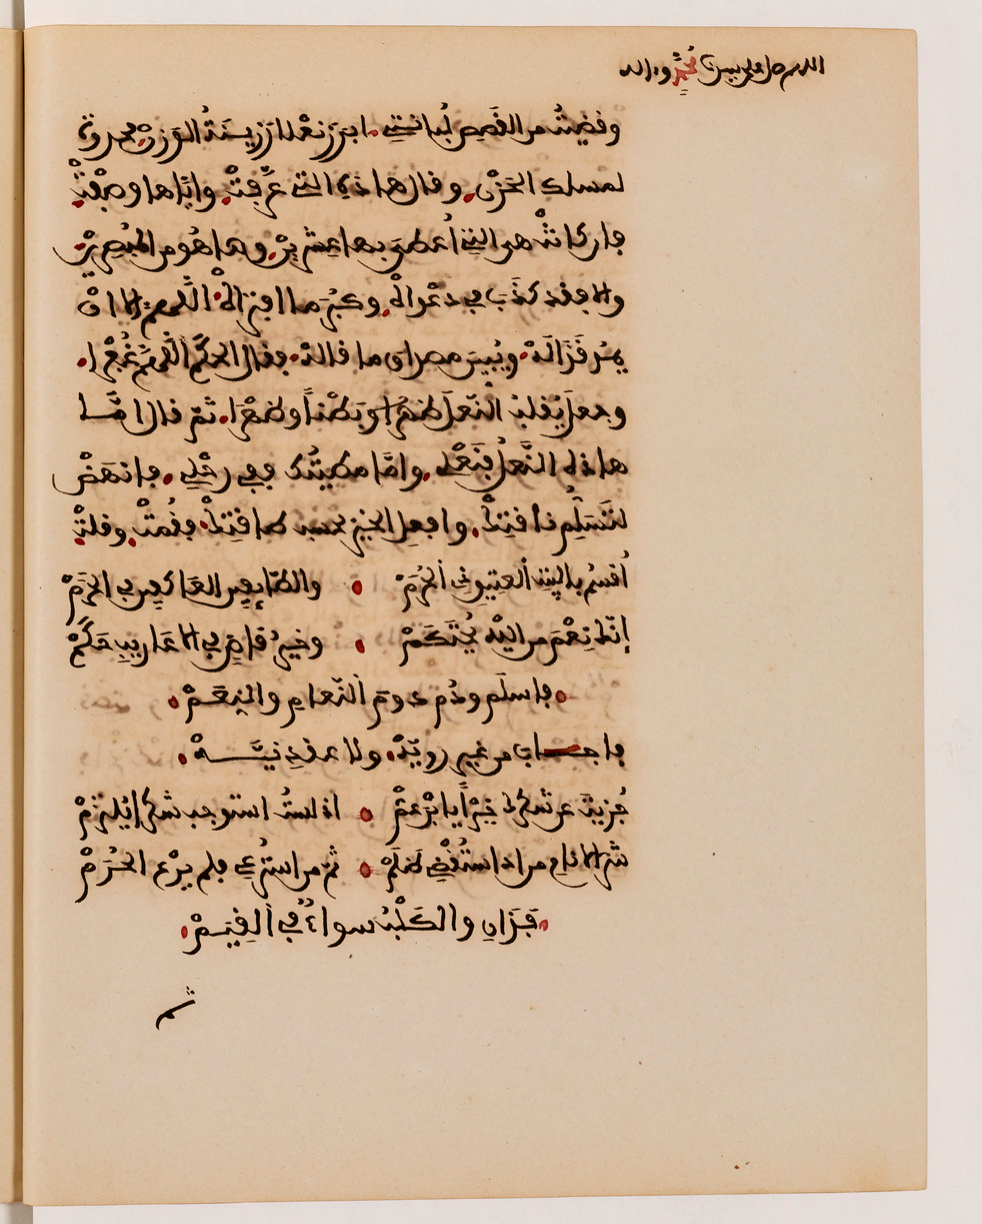 اللهم صل على نبينا محمد وءاله
وقضيتُ من القَصص لُبانتي. ابرز نعْلا رزينةُ الوزنْ. محذوة
لمسلك الحَزْن. وقال هاذه التي عرّفتْ. وايّاها وصفْتْ.
فان كانتْ هي التي اُعطي بها عشرينْ. وها هُو من المُبْصرينْ.
والا فقد كذَب في دعْواهْ. وكبُر ما افتراهْ. اللّهم إلا انْ
يمُد قَذَالهْ. ويُبين مصداق ما قالهْ. فقال الحكَم اللّهمّ غُفْرا.
وجعل يُقلّبُ النّعل ظهْرا وبَطْناً وظهْرا. ثمّ قال امّا
هاذه النّعلُ فنَعْلي. وامّا مطيّتُك ففي رحْلي. فانهَضْ
لتَسَلُّم ناقتكْ. وافعل الخير بحسب طاقتكْ. فقُمتْ. وقلتْ.
اُقسمُ بالبيت العتيق ذي الحُرَمْ والطّايفين العاكفين في الحرَمْ
إنّك نعْم من اليْه يُحْتكَمْ وخيرُ قاضٍ في الاعاريب حَكَمْ
فاسلَم ودُم دوم النّعام والنعَمْ
فاجاب من غير رويّهْ. ولا عقد نيّهْ.
جُزيتَ عن شكرك خيْراً يا بْن عَمْ اذ لستُ استوجب شكرا يُلتزَمْ
شرّ الانام من اذا استُقْضي ظلَمْ ثمّ من استُرْعي فلم يرْع الحُرَمْ
فذَان والكَلْبُ سواءٌ في القيَمْ